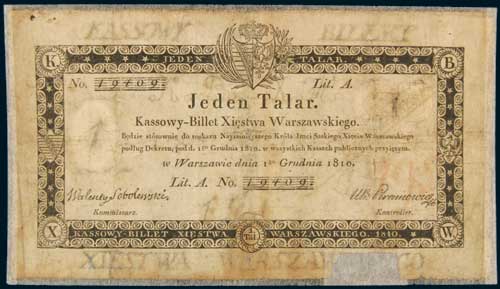 KASSOWY BILLET
K JEDEN TALAR. B
No. 19409. Lit. A.
Jeden Talar.
Kassowy-Billet Xięstwa Warszawskiego.
Będzie stósownie do Nayiaśnieyszego Króla Jmci Saskiego Xięcia Warszawskiego
podług Dekretu, pod d. 1go Grudnia 1810. w wszystkich Kassach publicznych przyiętym.
w Warszawie dnia 1go Grudnia 1810.
Lit. A. No. 19409.
Walenty Sobolewski
Kommissarz. Kontroller.
X KASSOWY-BILLET XIĘSTWA 1 Tal: WARSZAWSKIEGO. 1810. W
XIĘSTWA WARSZAWSKIEGO